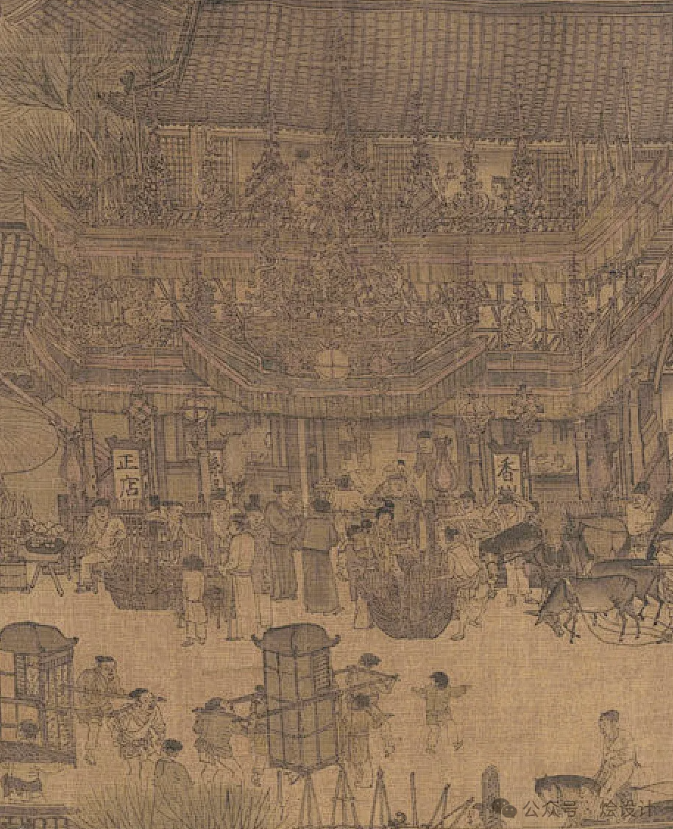 正
店
香
公众号·烩设计